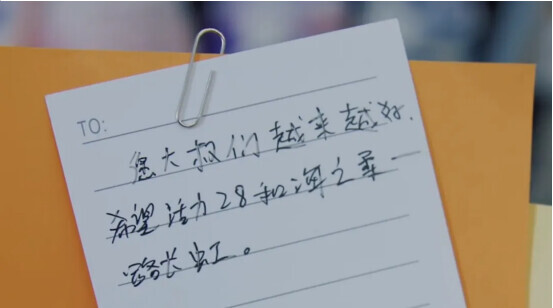 TO:
您大叔们越来越好.
希望活力28和海之柔一
路长虹。